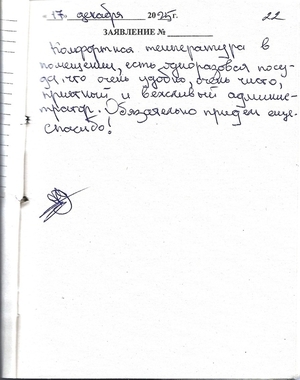 « 17 » декабря 2025 г. 22
ЗАЯВЛЕНИЕ №
Комфортная температура в
помещении, есть одноразовая посу-
да, что очень удобно, очень чисто,
приятный и вежливый админис-
тратор. Обязательно придём еще.
Спасибо!